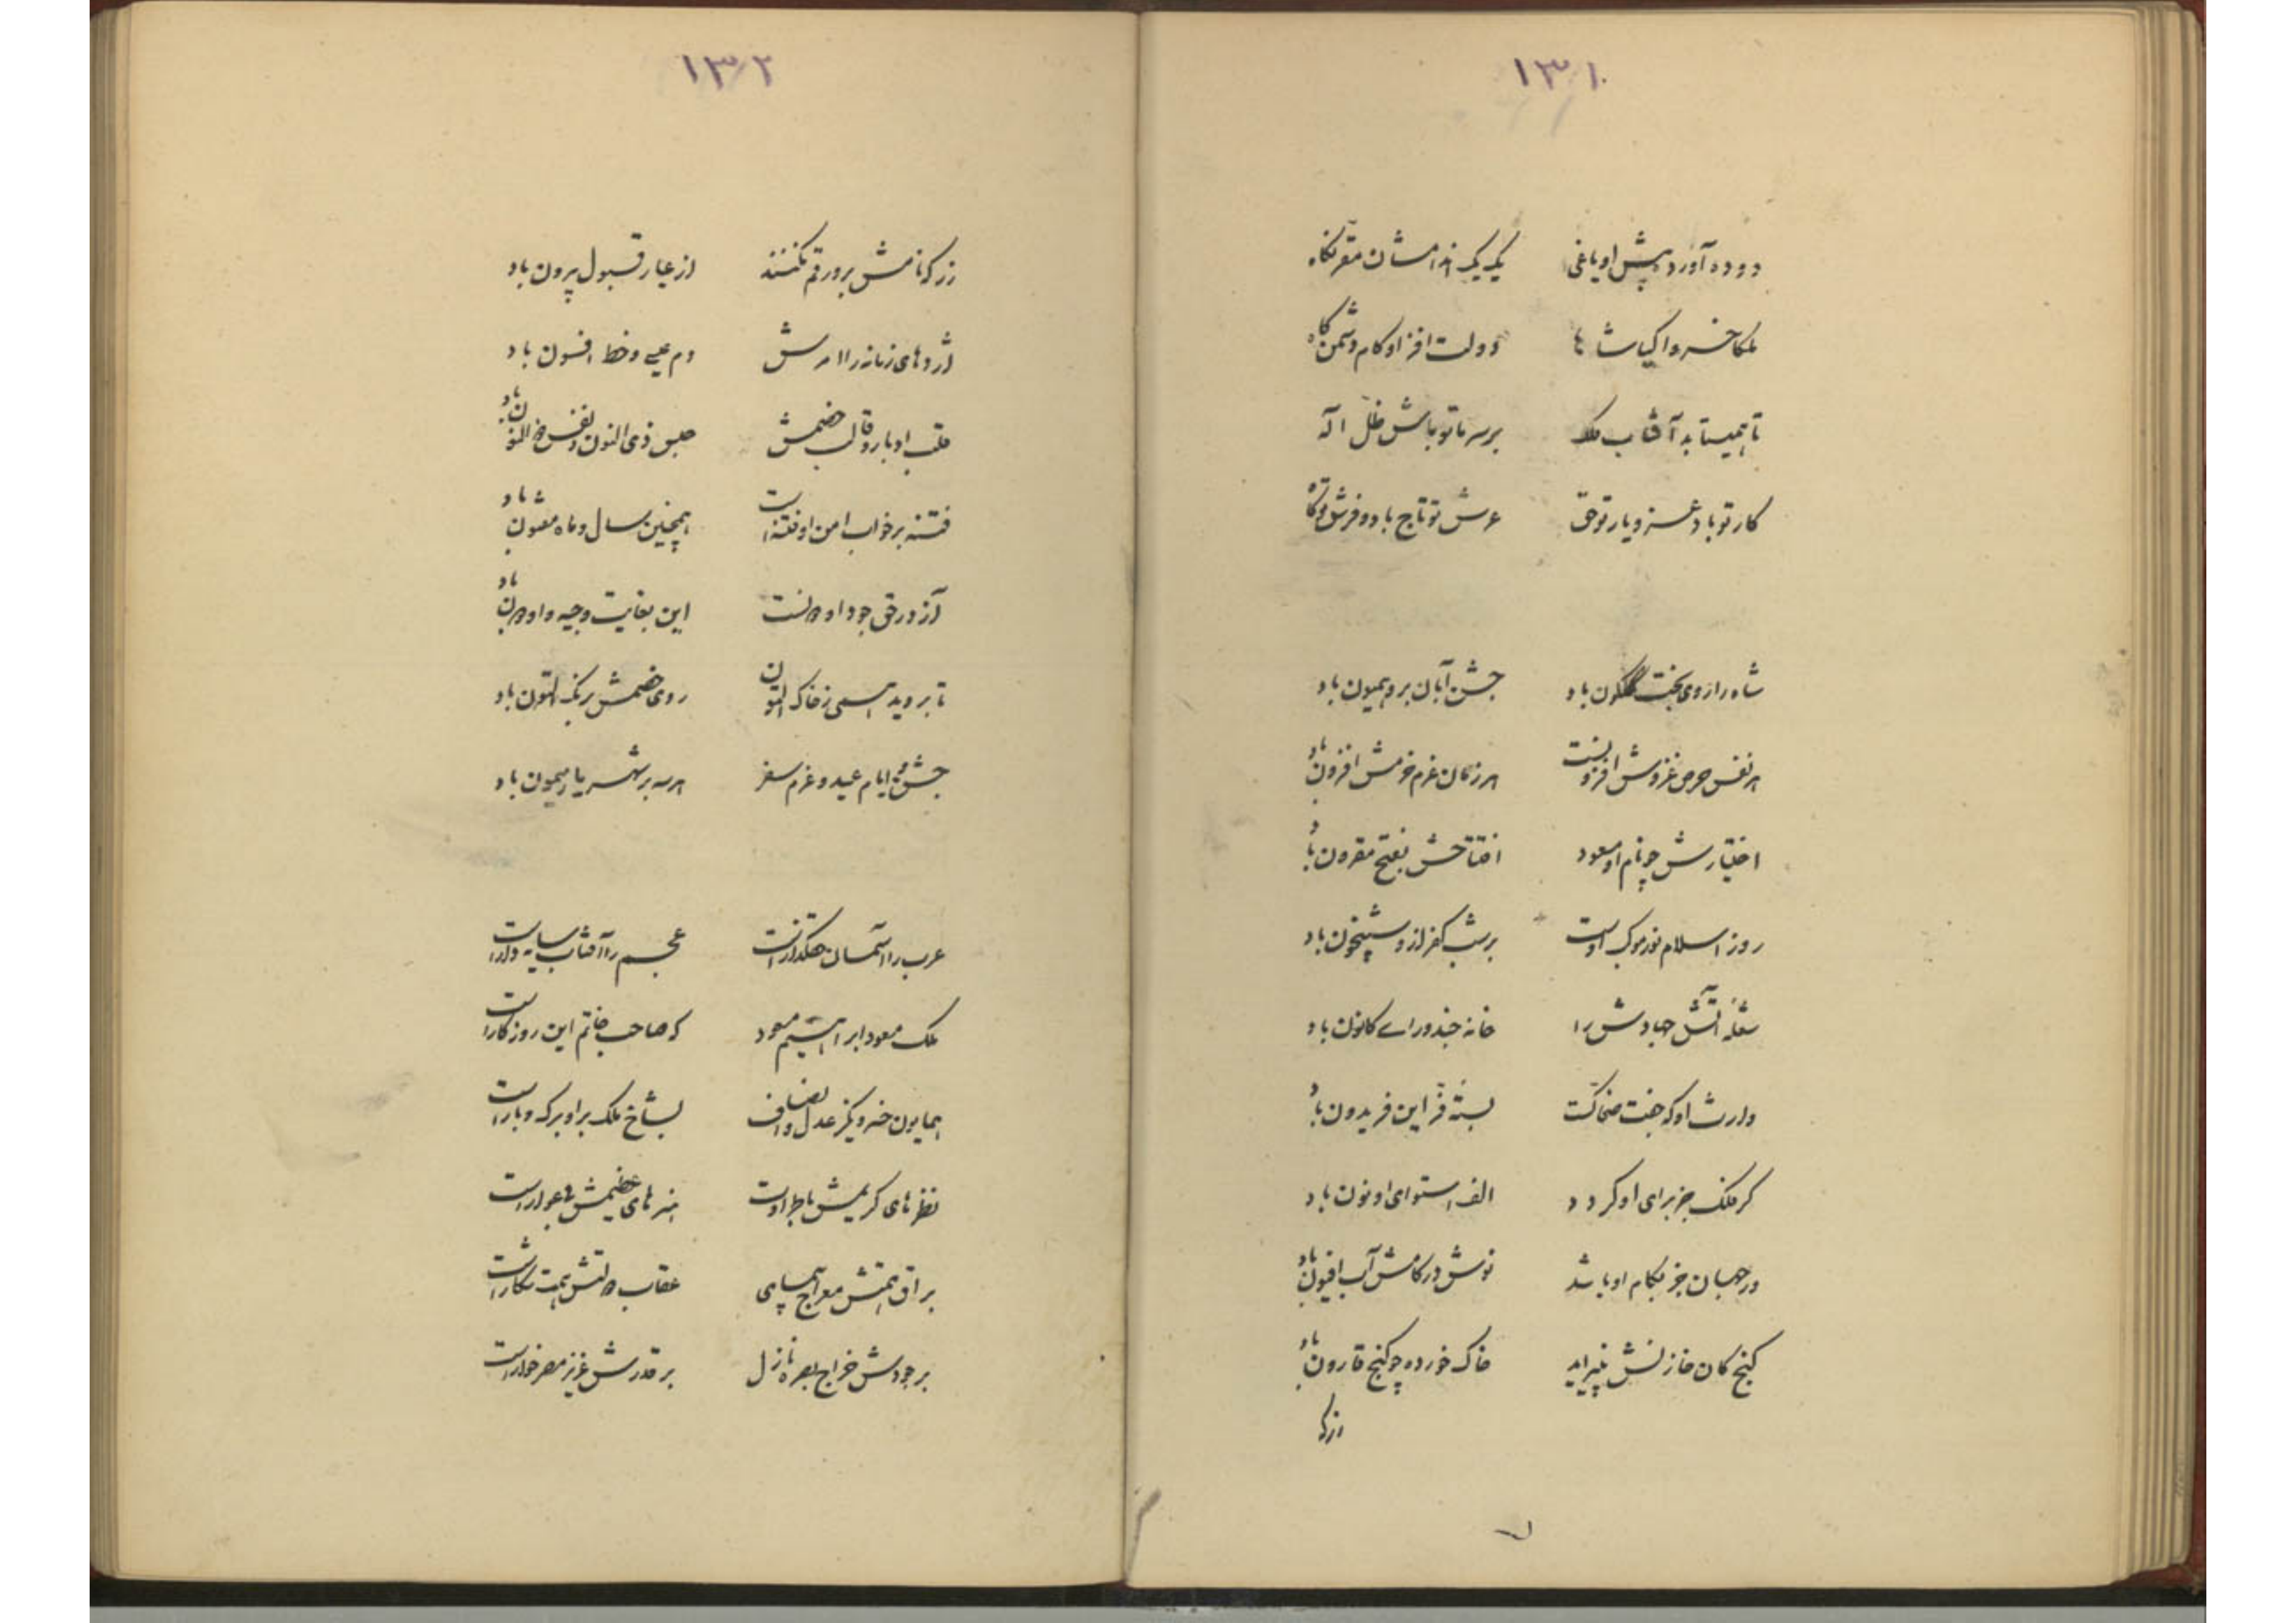 ۱۳۱
دوده آورده پیش او یاغی یک یک اندامشان مقر بگناه
ملکا خسروا کیا شاها دولت افزا و کام دشمن کاه
تا همیتابد آفتاب ملک بر سر ما تو باش ظل اله
کار تو باد عز و یار تو حق عرش تو تاج باد و فرش تو گاه
شاه را روی بخت گلگون باد جشن آبان برو همیون باد
هر نفس حرص غزوش افزونست هر زمان عزم خرمش افزون باد
اختیارش چو نام او مسعود افتتاحش بفتح مقرون باد
روز اسلام نور موکب اوست بر شب کفر ازو شبیخون باد
شعله آتش جهادش را خانه جند ورای کانون باد
وارث او که جفت ضحاکست بسته فر این فریدون باد
گر ملک جز برای او گردد الف استوای او نون باد
ور جهان جز بکام او باشد نوش در کامش آب افیون باد
گنج کان خازنش نپیراید خاک خورده چو گنج قارون باد
زر که
۱۳۲
زر که نامش برو رقم نکنند از عیار قبول بیرون باد
اژدهای زمانه را امرش دم عیسی و خط افسون باد
قلب ادبار و قالب خصمش حبس ذی النون و نفس ذو النون باد
فتنه بر خواب امن او فتنه است همچنین سال و ماه مفتون باد
آز در حق جود او مدانست این بغایت وجیه و او مدیون باد
تا بروید همی ز خاک التون روی خصمش برنگ التون باد
جشن و ایام عید و عزم سفر هر سه بر شهریار میمون باد
عرب را آسمان حقگذارنست عجم را آفتاب سایه دارا است
ملک مسعود ابراهیم مسعود که صاحب خاتم این روزگار است
همایون خسروی کز عدل و انصاف بشاخ ملک بر او برگ و بار است
نظر های کریمش با طراوت هنر های خصیمش با عوار است
براق همتش معراج پیمای عقاب دولتش همت شکار است
بر جودش خراج بصره نازل بر قدرش عزیز مصر خوار است